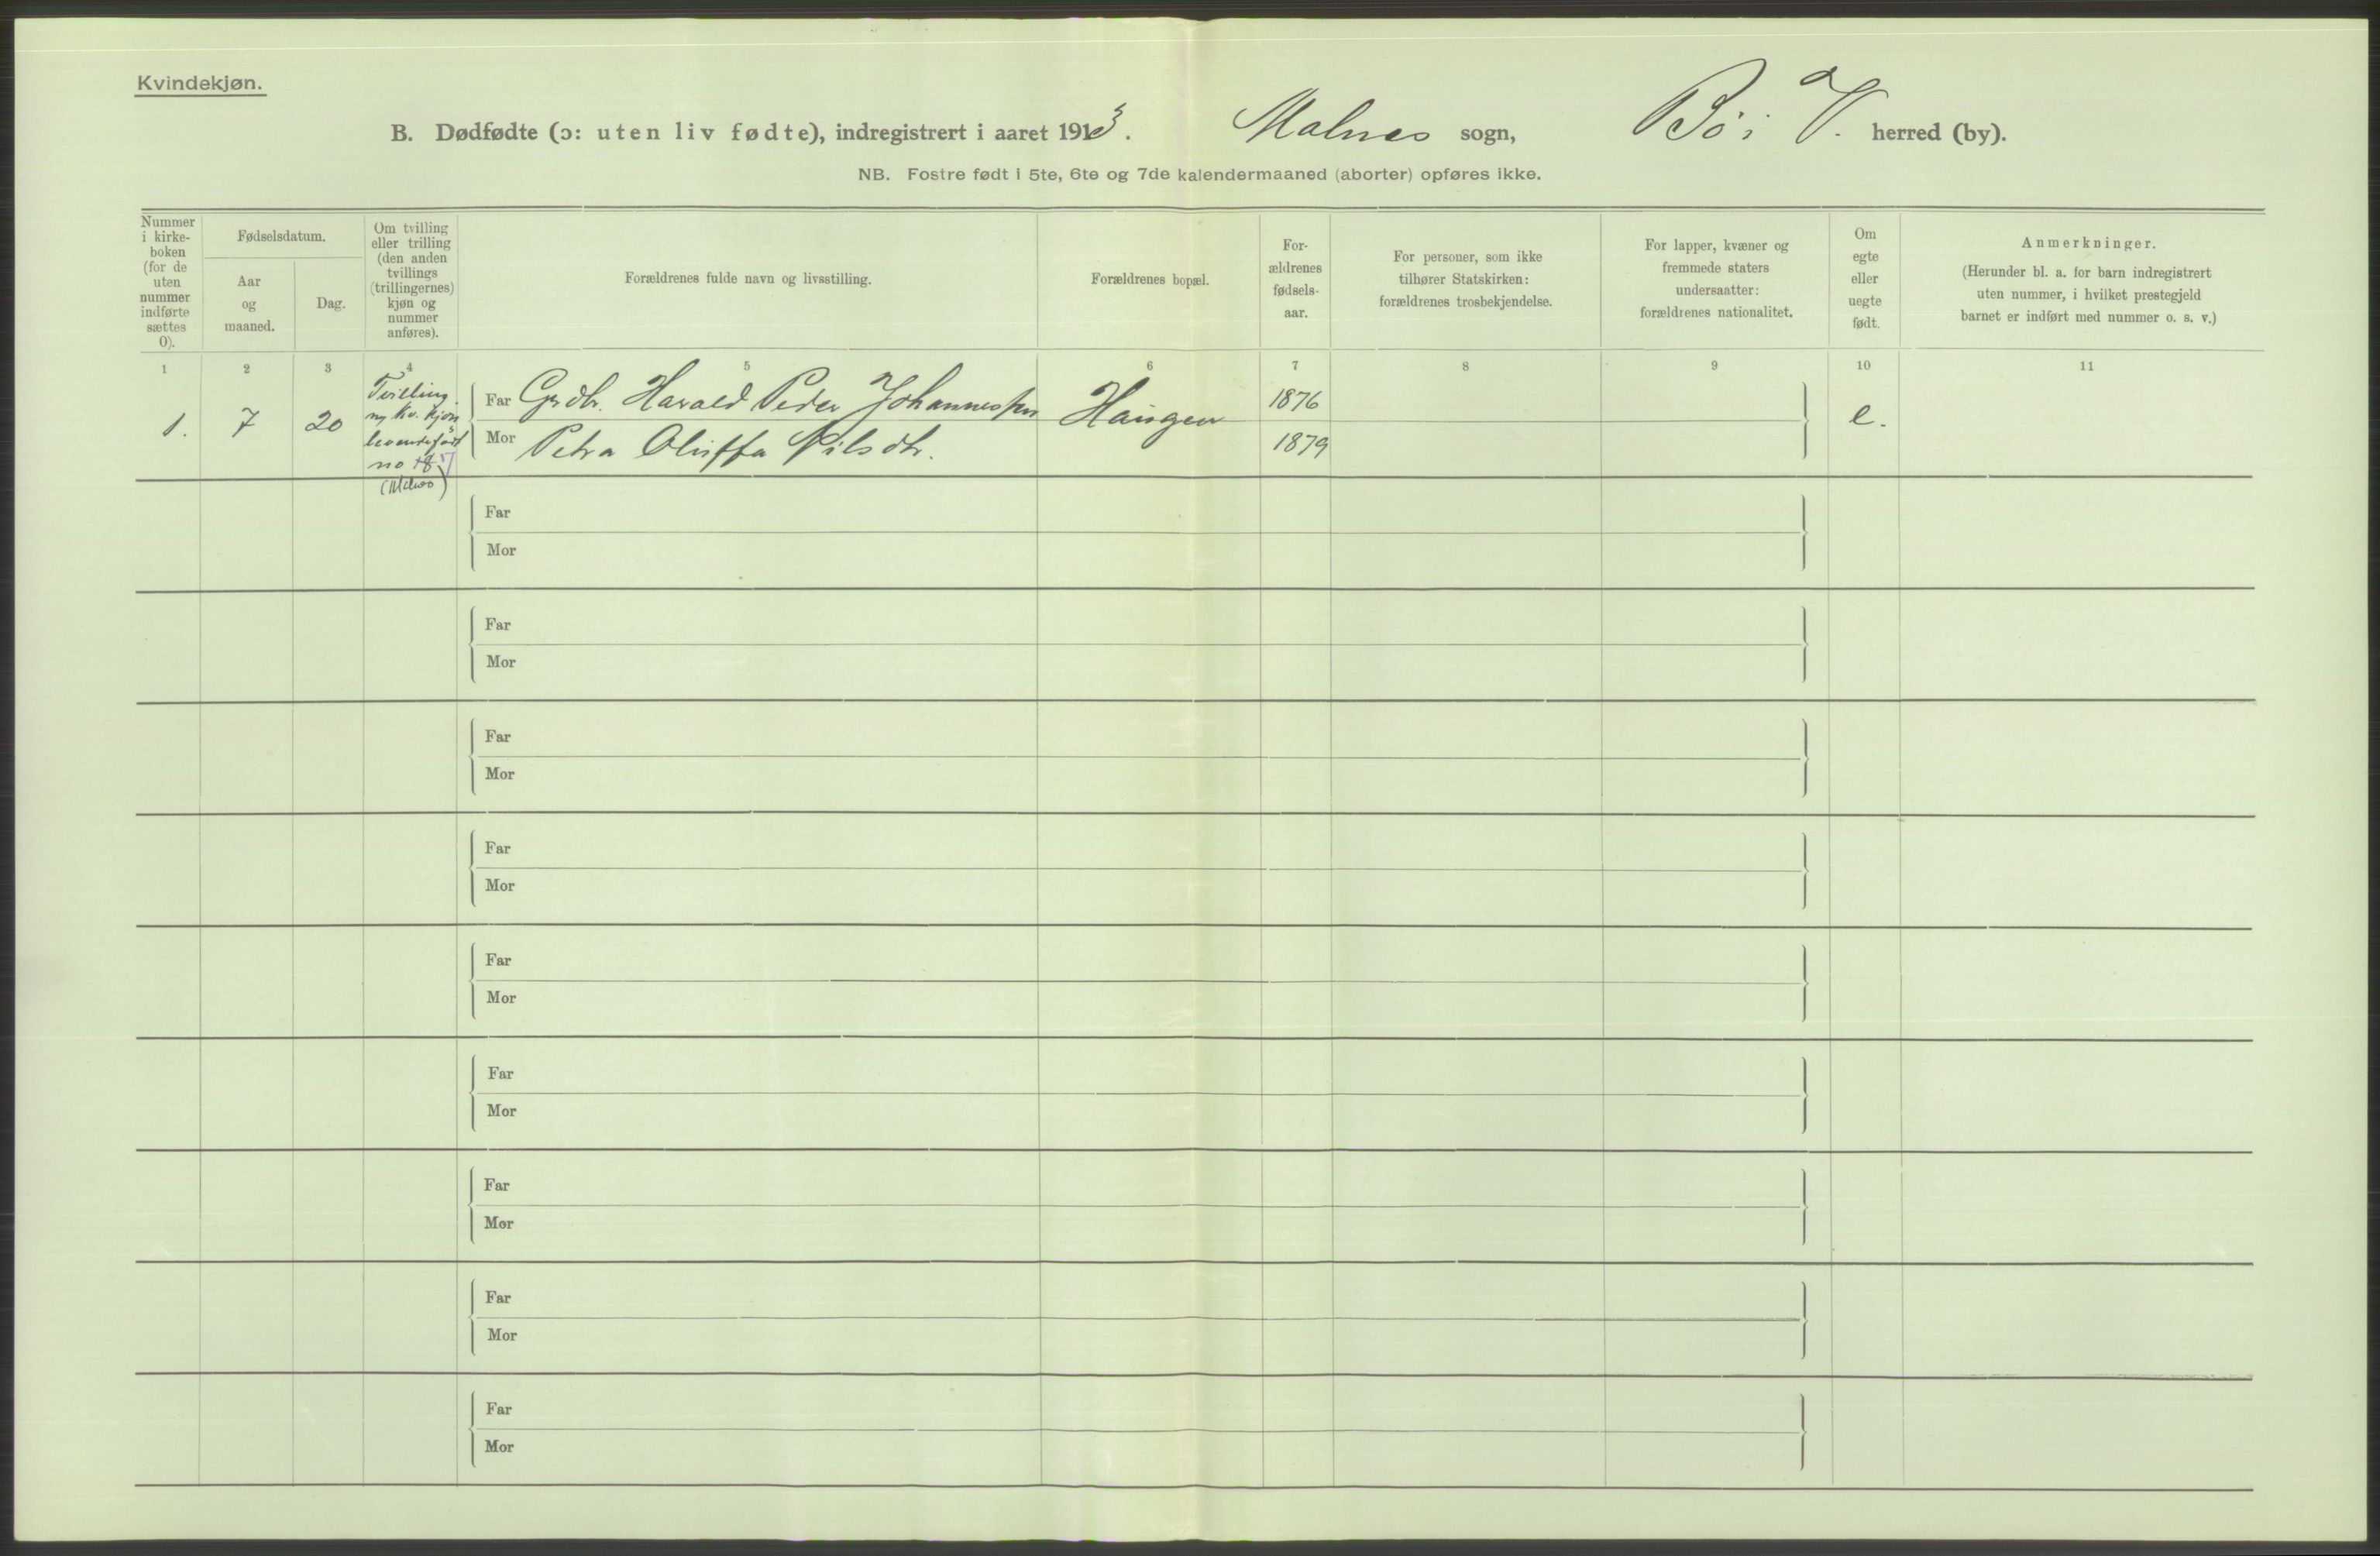 Kvindekjøn.
B. Dødfødte (ɔ: uten liv fødte), indregistrert i aaret 1913. Malnes sogn, Bø i V. herred (by).
NB. Fostre født i 5te, 6te og 7de kalendermaaned (aborter) opføres ikke.
Nummer
i kirke-
boken
(for de
uten
nummer
indførte
sættes
0).
Fødselsdatum.
Aar
og
maaned.
Dag.
Om tvilling
eller trilling
(den anden
tvillings
(trillingernes)
kjøn og
nummer
anføres).
Forældrenes fulde navn og livsstilling.
Forældrenes bopæl.
For-
ældrenes
fødsels-
aar.
For personer, som ikke
tilhører Statskirken:
forældrenes trosbekjendelse.
For lapper, kvæner og
fremmede staters
undersaatter:
forældrenes nationalitet.
Om
egte
eller
uegte
født.
Anmerkninger.
(Herunder bl. a. for barn indregistrert
uten nummer, i hvilket prestegjeld
barnet er indført med nummer o. s. v.)
1 2 3 4 5 6 7 8 9 10 11
1. 7 20
Tvilling
m. kv. kjøn
levendefødt
no 18 7
(Malnes)
Far Grdbr. Harald Peder Johannessen Haugen 1876 e.
Mor Petra Oluffa Nilsdtr. 1879
Far
Mor
Far
Mor
Far
Mor
Far
Mor
Far
Mor
Far
Mor
Far
Mor
Far
Mor
Far
Mor